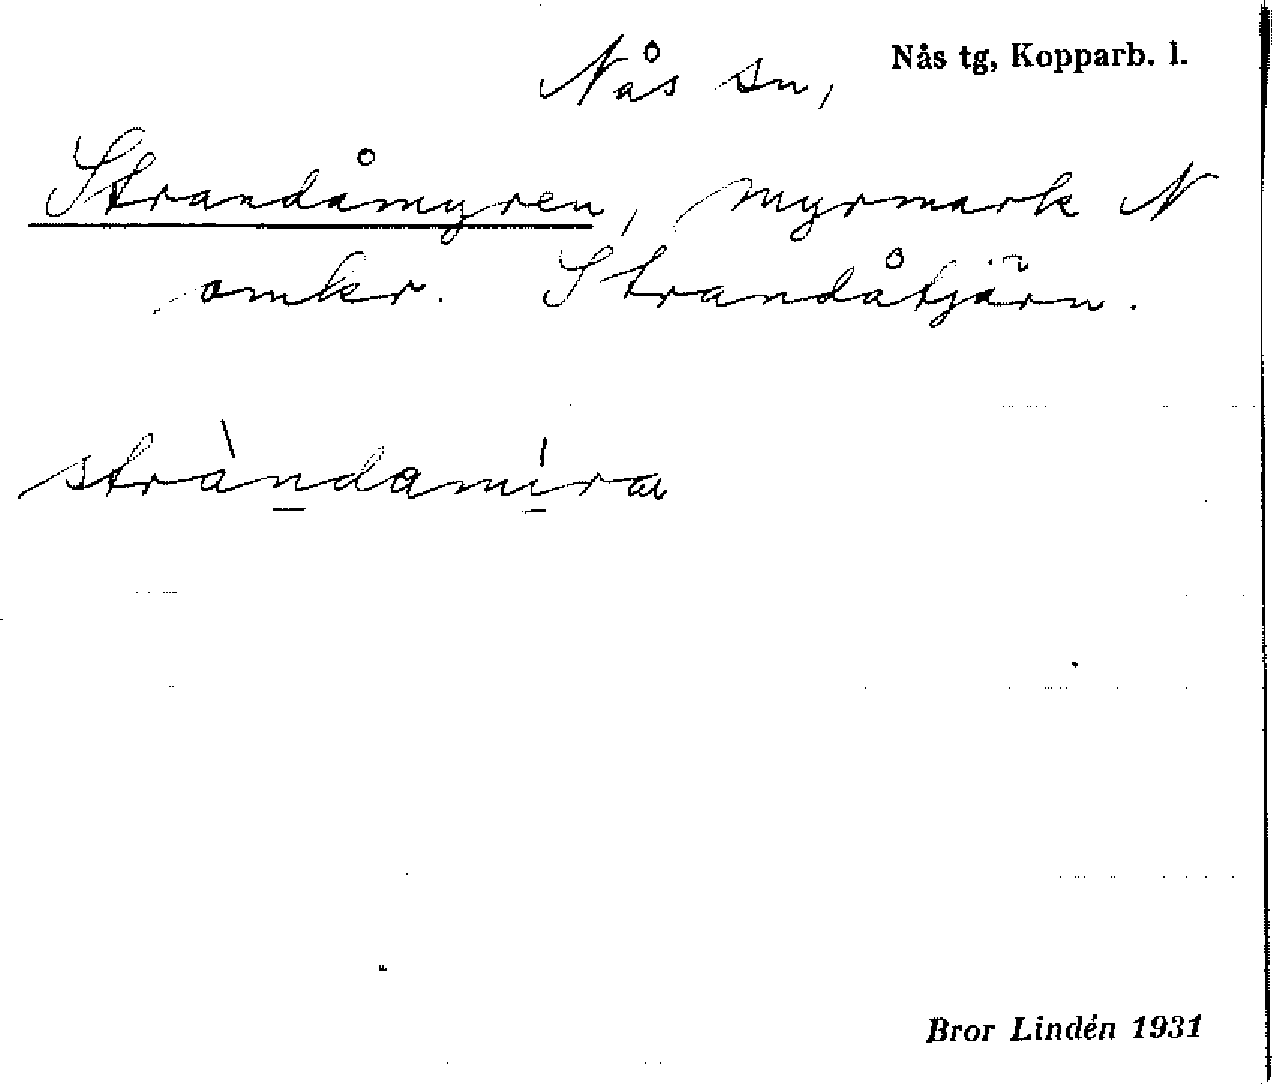 Nås sn, Nås tg, Kopparb. l.
Strandåmyren, myrmark N
omkr. Strandåtjärn.
stràndamira
Bror Lindén 1931